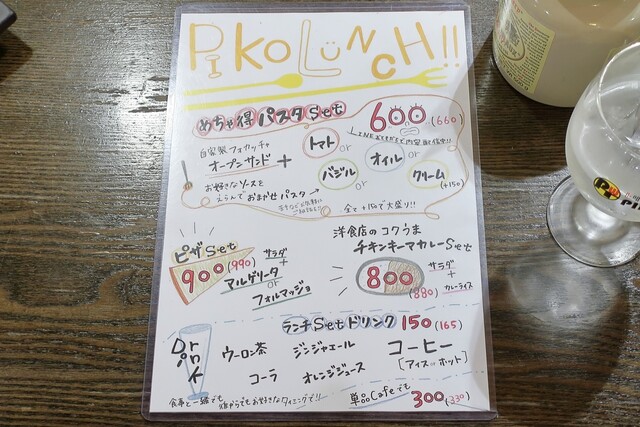 PIKO LUNCH!!
めちゃ得パスタSet 600(660)
自家製フォカッチャ
オープンサンド +
トマト or オイル or
バジル or クリーム (+150)
お好きなソースを
えらんでおまかせパスタ
全て+150で大盛り!!
ピザSet
900(990)
サラダ
+
マルゲリータ
or
フォルマッジョ
洋食店のコクうま
チキンキーマカレーSet
800
(880)
サラダ
+
カレーライス
ランチSetドリンク 150(165)
Drink
ウーロン茶 ジンジャエール コーヒー
[アイス or ホット]
コーラ オレンジジュース
食事と一緒でも
後からでもお好きなタイミングで!!
単品Cafeでも 300(330)